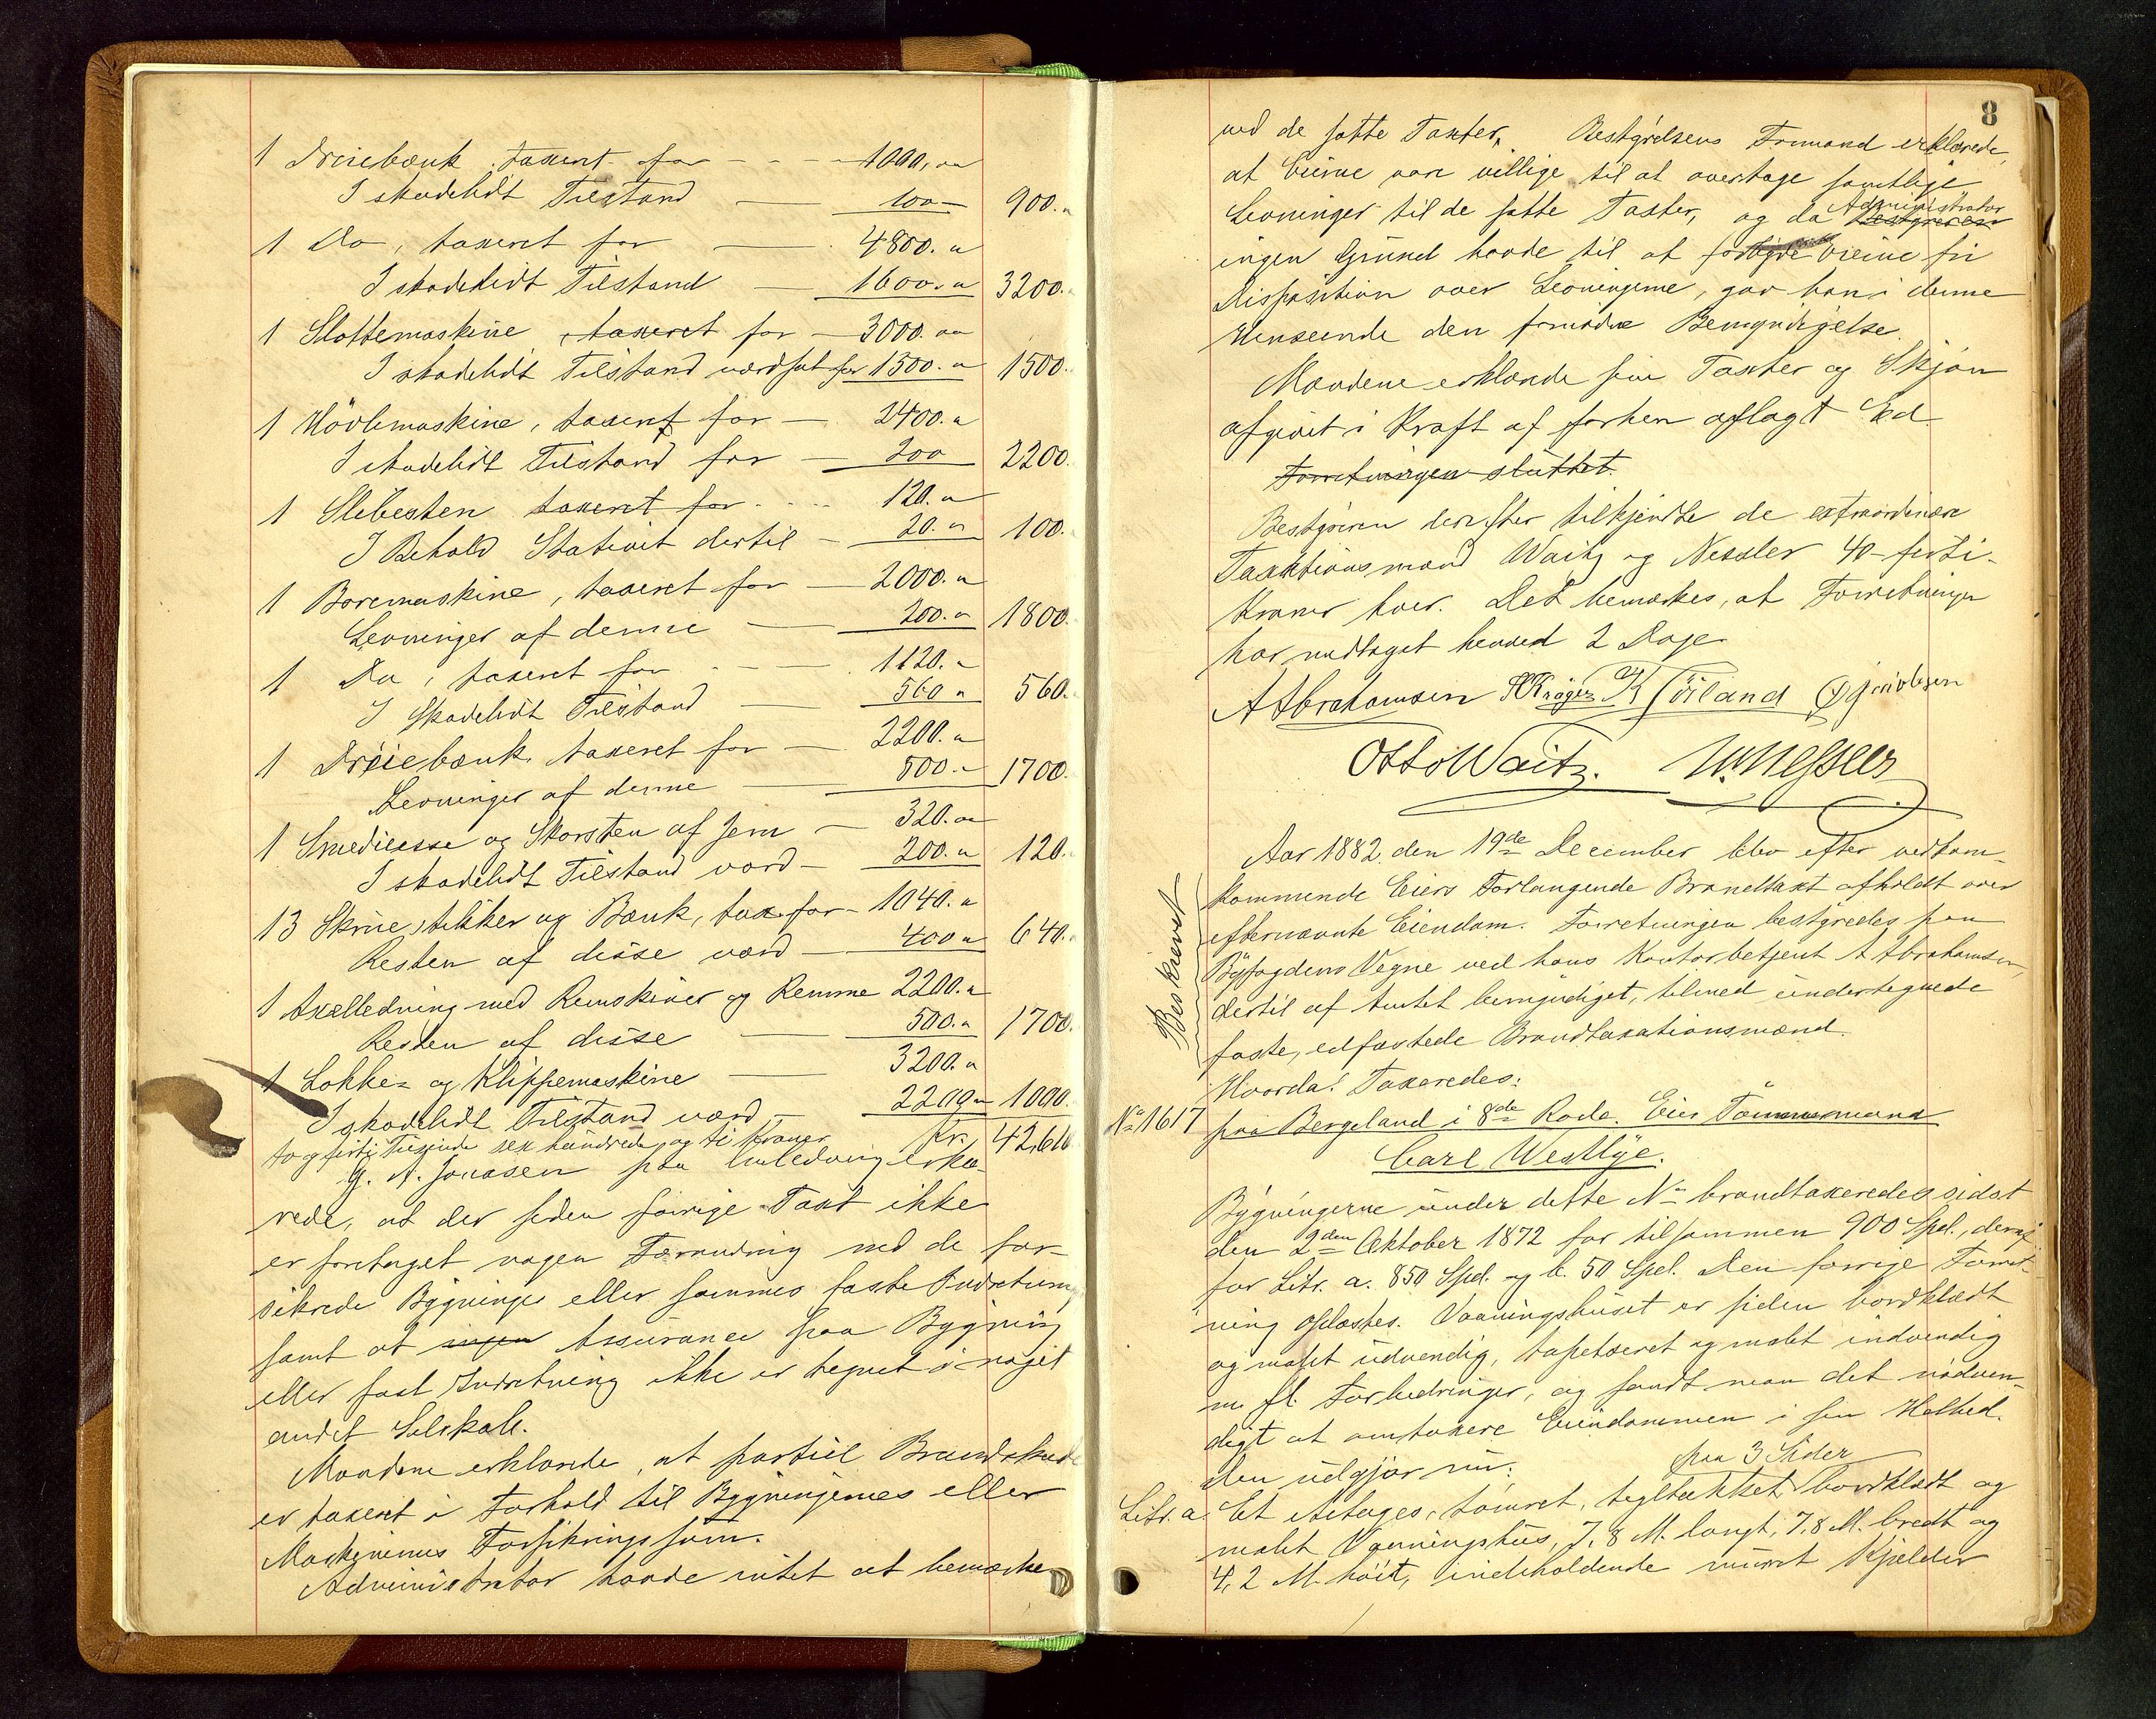 1 Dreiebænk, taxeret for - - - 1000,00
I skadelidt Tilstand — 100 — 900.
1 Do, taxeret for — 4800.
I skadelidt Tilstand — 1600. 3200.
1 Slottemaskine, taxeret for — 3000.00
I skadelidt Tilstand værdsat for 1500. 1500.
1 Hövlemaskine, taxeret for — 2400.
I skadelidt Tilstand for — 200 2200.
1 Slibesten taxeret for . . . . 120.
I Behold Stativet dertil — 20. 100.
1 Boremaskine, taxeret for — 2000.
Levninger af denne — 200. 1800.
1 Do, taxeret for - - — 1120.
I skadelidt Tilstand — 560 560.
1 Dreiebænk, taxeret for — 2200.
Levninger af denne — 500. 1700.
1 Smedieesse og Skorsten af Jern — 320.00
I skadelidt Tilstand værd — 200. 120.
13 Skruestikker og Bænk, tax. for — 1040.
Resten af disse værd — 400 640.
1 Axelledning med Remskiver og Remme 2200.
Resten af disse — 500. 1700.
1 Lokke- og Klippemaskine — 3200.
I skadelidt Tilstand værd, — 2200 1000.
to og firti Tusinde sex hundrede og ti Kroner Kr. 42,610
G. A. Jonasen paa Anledning erklæ-
rede, at der siden forrige Taxt ikke
er foretaget nogen Forandring ved de for-
sikrede Bygninger eller sammes faste Indretning,
samt at ingen Assurance paa Bygning
eller fast Indretning ikke er tegnet i noget
andet Selskab.
Mændene erklærede, at partiel Brandskade
er taxeret i Forhold til Bygningernes eller
Maskinernes Forsikringssum.
Administrator havde intet at bemærke
8
ved de satte Taxter. Bestyrelsens Formand erklærede,
at Eierne vare villige til at overtage samtlige
Levninger til de satte Taxter, og da Bestyreren Administrator
ingen Grund havde til at forbyde Eierne fri
Disposition over Levningerne, gav han i denne
Henseende den fornødne Bemyndigelse.
Mændene erklærede sine Taxter og Skjön
afgivet i Kraft af forhen aflagt Ed
Forretningen sluttet.
Bestyreren derefter tilkjendte de extraordinære
Taxationsmænd Waitz og Nessler 40 - firti -
Kroner hver. Det bemærkes, at Forretningen
har medtaget henved 2 Dage
A Abrahamsen Kröger K Törland
Otto Waitz. W. Nessler
Beskrevet
Aar 1882 den 19de December blev efter vedkom-
kommende Eiers Forlangende Brandtaxt afholdt over
efternævnte Eiendom. Forretningen bestyredes paa
Byfogdens Vegne ved hans Kontorbetjent A Abrahamsen,
dertil af Amtet bemyndiget, tilmed undertegnede
faste, edfæstede Brandtaxationsmænd.
Hvorda! Taxeredes:
No 1617 paa Bergeland i 8de Rode. Eier Tömmermand
Carl Westlye.
Bygningerne under dette No brandtaxeredes sidst
den 2den Oktober 1872 for tilsammen 900 Spd., deraf
for Litr. a. 850 Spd. og b. 50 Spd. Den forrige Forret-
ning oplæstes. Vaaningshuset er siden bordklædt
og malet udvendig, tapetseret og malet indvendig
m. fl. Forbedringer, og fandt man det nödven-
digt at omtaxere Eiendommen i sin Helhed.
Den udgjör nu: paa 3 Sider
Litr. a Et etetages, tömret, tegltækket bordklædt og
malet Vaaningshus, 7,8 M. langt, 7,8 M. bredt og
4,2 M. höit, indeholdende muret Kjelder